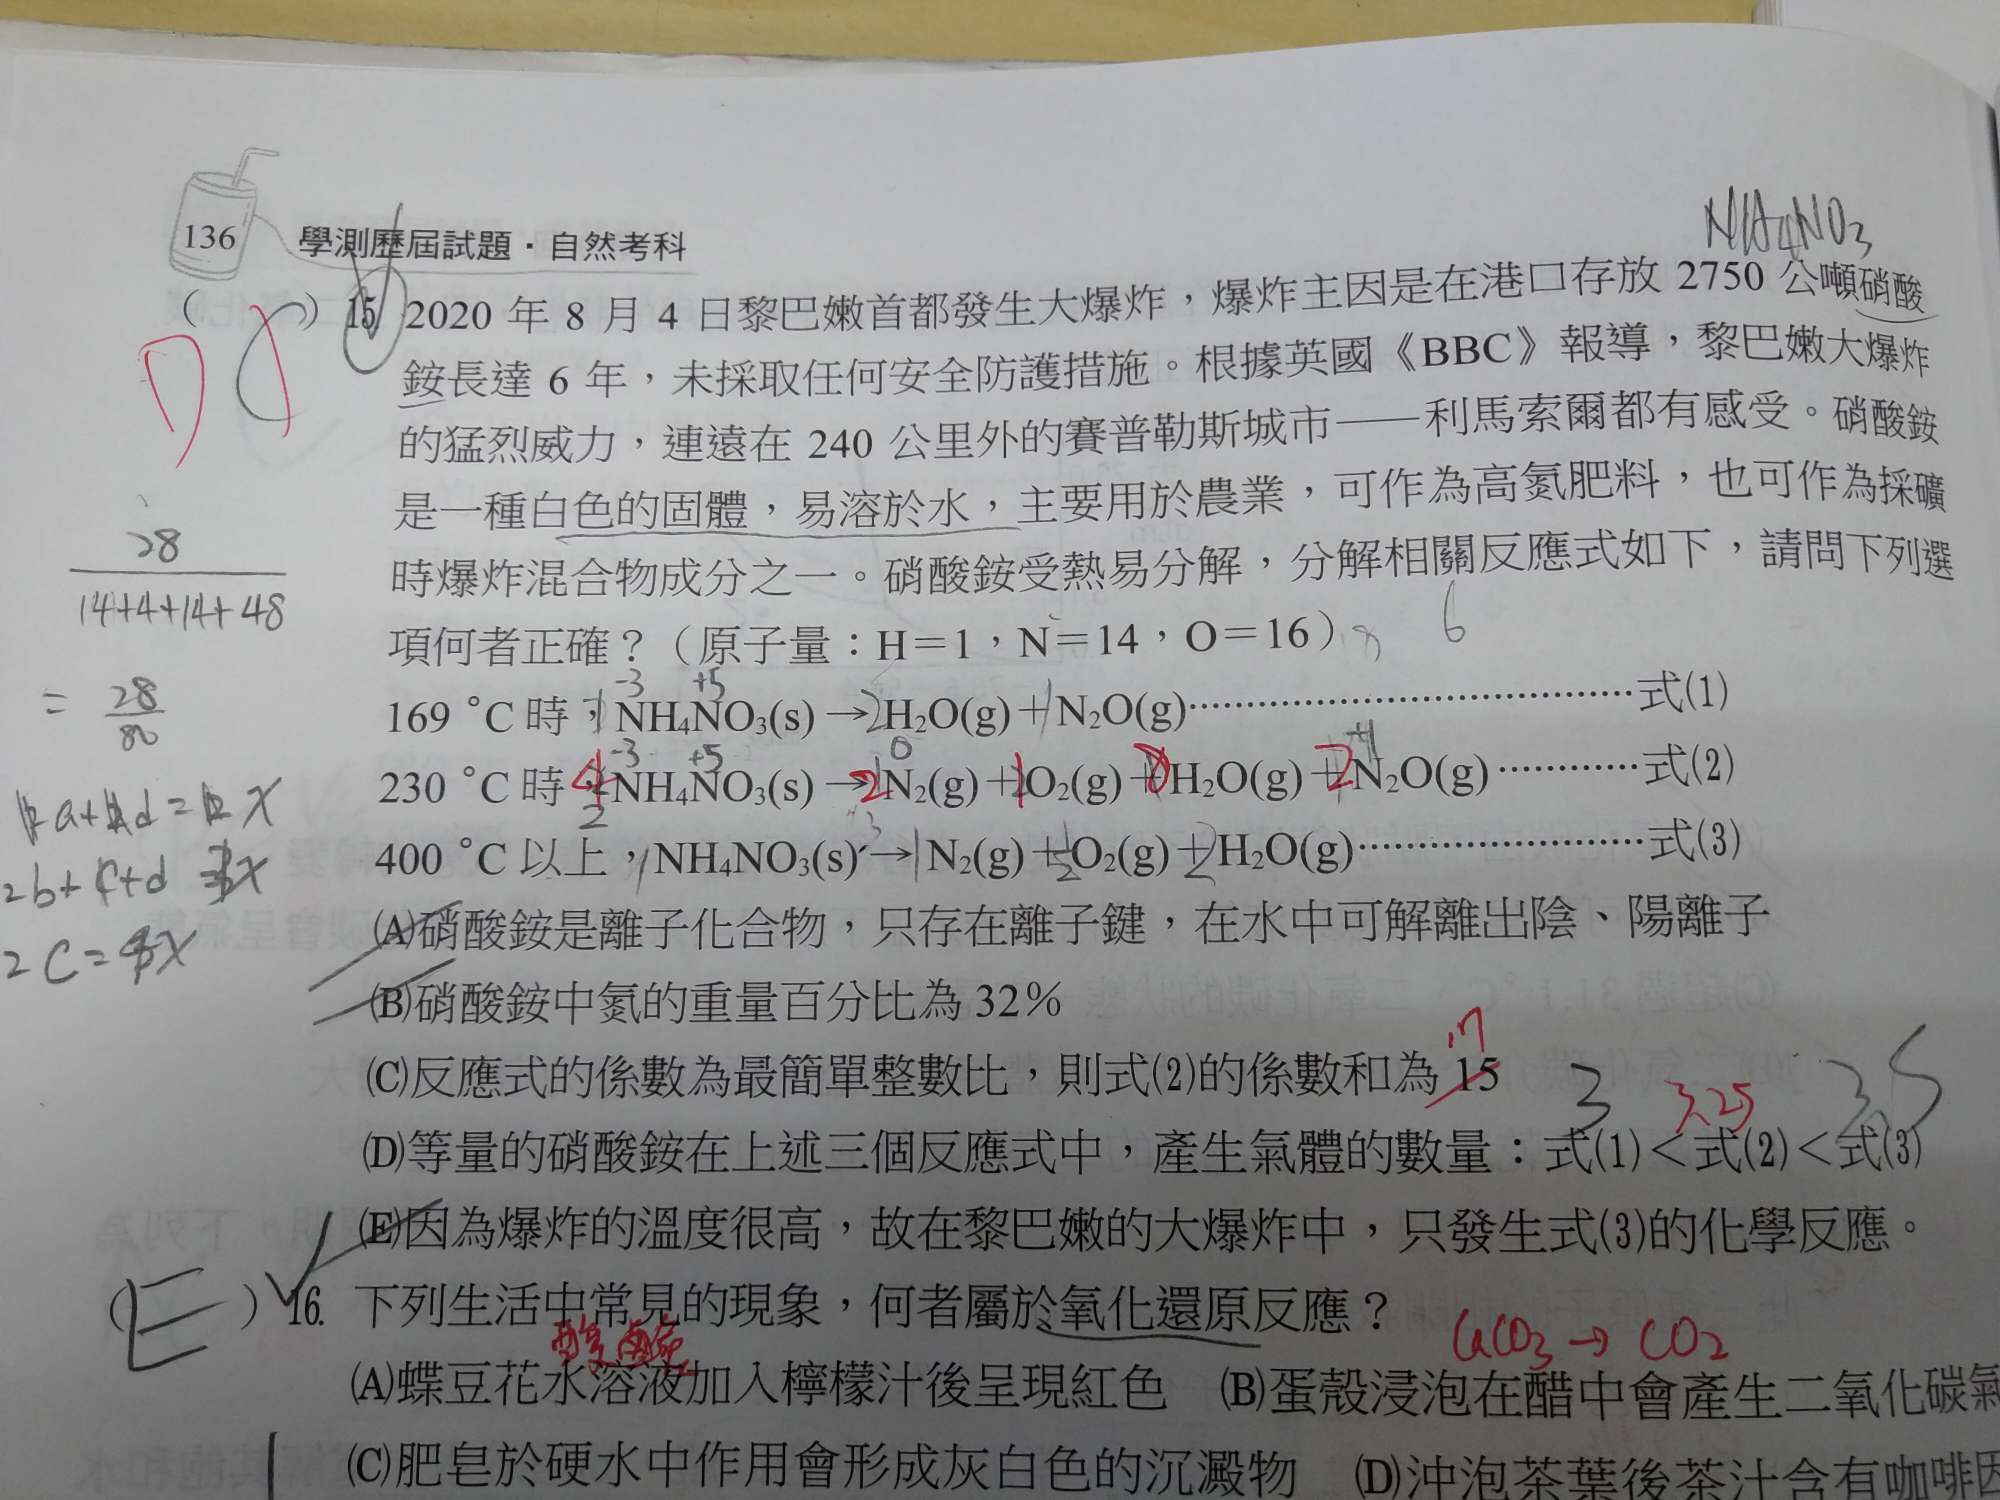 NH4NO3
136 學測歷屆試題・自然考科
( ) 15. 2020 年 8 月 4 日黎巴嫩首都發生大爆炸，爆炸主因是在港口存放 2750 公噸硝酸
銨長達 6 年，未採取任何安全防護措施。根據英國《BBC》報導，黎巴嫩大爆炸
的猛烈威力，連遠在 240 公里外的賽普勒斯城市——利馬索爾都有感受。硝酸銨
是一種白色的固體，易溶於水，主要用於農業，可作為高氮肥料，也可作為採礦
時爆炸混合物成分之一。硝酸銨受熱易分解，分解相關反應式如下，請問下列選
項何者正確？（原子量：H＝1，N＝14，O＝16）
6
28
14+4+14+48
= 28
80
-3 +5
169 ˚C 時，NH4NO3(s) → 2H2O(g)＋1N2O(g)⋯⋯⋯⋯⋯⋯⋯⋯⋯⋯⋯⋯式(1)
-3 +5 0 +1
230 ˚C 時，4NH4NO3(s) → 2N2(g)＋1O2(g)＋8H2O(g)＋2N2O(g)⋯⋯⋯⋯式(2)
400 ˚C 以上，1NH4NO3(s) → 1N2(g)＋1/2O2(g)＋2H2O(g)⋯⋯⋯⋯⋯⋯⋯⋯式(3)
(A)硝酸銨是離子化合物，只存在離子鍵，在水中可解離出陰、陽離子
(B)硝酸銨中氮的重量百分比為 32%
17
(C)反應式的係數為最簡單整數比，則式(2)的係數和為 15
3 3.25 3.5
(D)等量的硝酸銨在上述三個反應式中，產生氣體的數量：式(1)＜式(2)＜式(3)
(E)因為爆炸的溫度很高，故在黎巴嫩的大爆炸中，只發生式(3)的化學反應。
( E ) 16. 下列生活中常見的現象，何者屬於氧化還原反應？
酸鹼
CaCO3 → CO2
(A)蝶豆花水溶液加入檸檬汁後呈現紅色 (B)蛋殼浸泡在醋中會產生二氧化碳氣
(C)肥皂於硬水中作用會形成灰白色的沉澱物 (D)沖泡茶葉後茶汁含有咖啡因